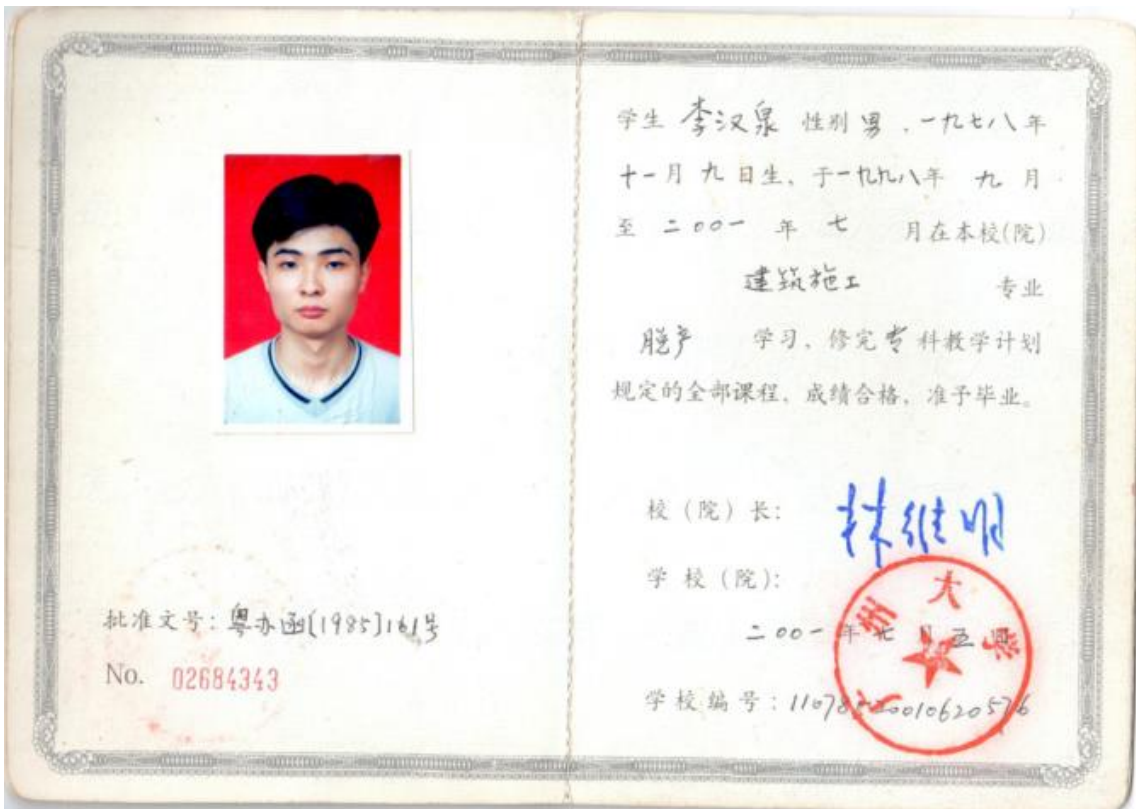 批准文号：粤办函[1985]161号
No. 02684343
学生 李汉泉 性别 男，一九七八年
十一月 九 日生、于一九九八年 九 月
至 二00一 年 七 月在本校(院)
建筑施工 专业
脱产 学习、修完专科教学计划
规定的全部课程、成绩合格、准予毕业。
校（院）长： 林维明
学 校（院）：
广州大学
二00一年七月五日
学校编号：